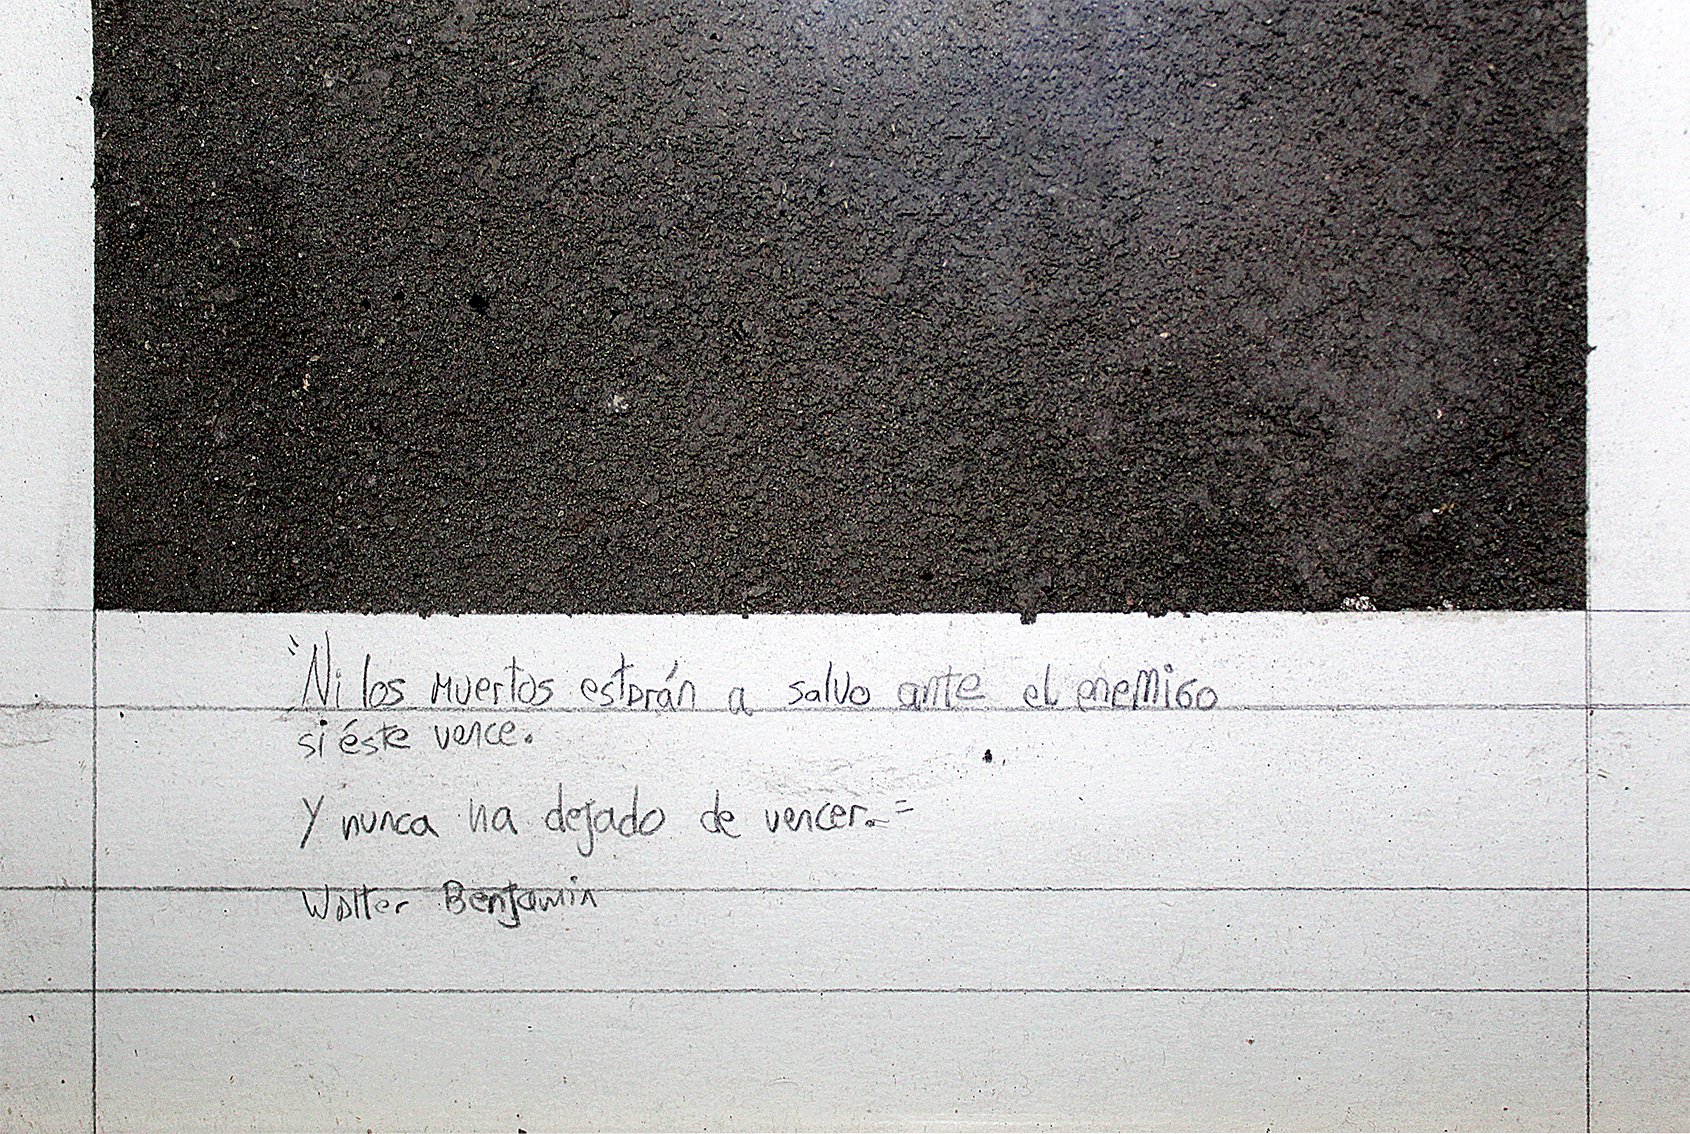 "Ni los muertos estarán a salvo ante el enemigo
si éste vence.
Y nunca ha dejado de vencer."
Walter Benjamin